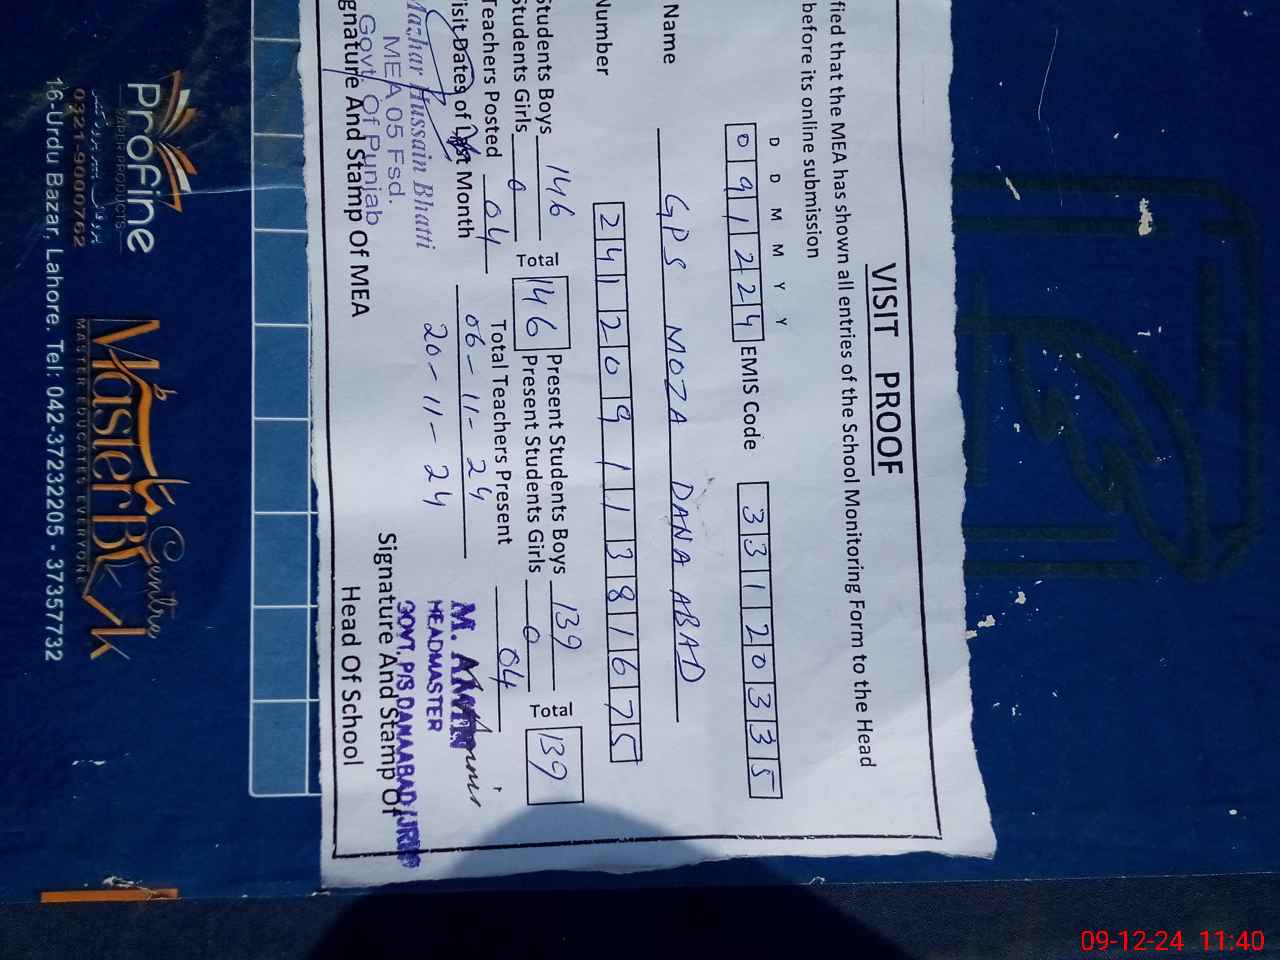 VISIT PROOF
fied that the MEA has shown all entries of the School Monitoring Form to the Head
before its online submission
D D M M Y Y
091224 EMIS Code 33120335
Name GPS MOZA DANA ABAD
Number 2412091138167 5
Students Boys 146 Total 146 Present Students Boys 139 Total 139
Students Girls 0 Present Students Girls 0
Teachers Posted 04 Total Teachers Present 04
isit Dates of Last Month 06-11-24
20-11-24
Mazhar Hussain Bhatti
MEA 05 Fsd.
Govt. Of Punjab
gnature And Stamp Of MEA
M. AMIN
HEADMASTER
GOVT, P/S DANAABAD (JRW
Signature And Stamp Of
Head Of School
Profine
PAPER PRODUCTS
0321-9000762
Master Book Centre
MASTER EDUCATES EVERYONE
16-Urdu Bazar, Lahore. Tel: 042-37232205 - 37357732
09-12-24 11:40